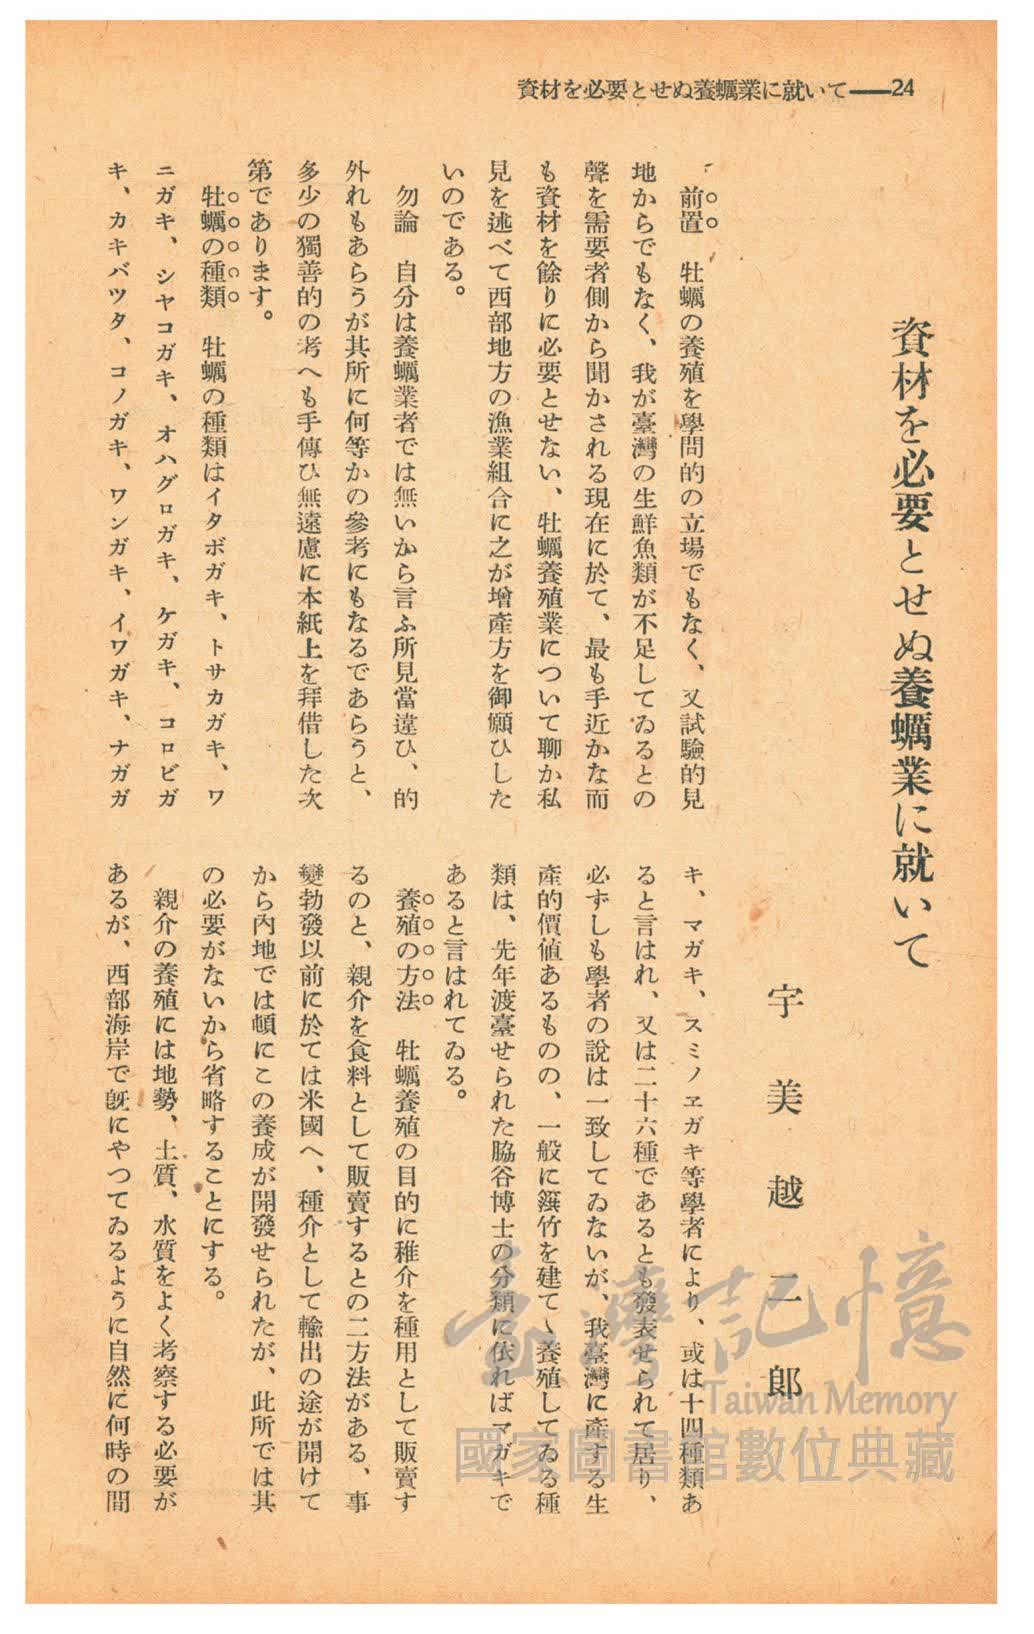 資材を必要とせぬ養蠣業に就いて——24
資材を必要とせぬ養蠣業に就いて
宇美越二郎
前置　牡蠣の養殖を學問的の立場でもなく、又試驗的見
地からでもなく、我が臺灣の生鮮魚類が不足してゐるとの
聲を需要者側から聞かされる現在に於て、最も手近かな而
も資材を餘りに必要とせない、牡蠣養殖業について聊か私
見を述べて西部地方の漁業組合に之が增産方を御願ひした
いのである。
勿論　自分は養蠣業者では無いから言ふ所見當違ひ、的
外れもあらうが其所に何等かの參考にもなるであらうと、
多少の獨善的の考へも手傳ひ無遠慮に本紙上を拜借した次
第であります。
牡蠣の種類　牡蠣の種類はイタボガキ、トサカガキ、ワ
ニガキ、シヤコガキ、オハグロガキ、ケガキ、コロビガ
キ、カキバツタ、コノガキ、ワンガキ、イワガキ、ナガガ
キ、マガキ、スミノヱガキ等學者により、或は十四種類あ
ると言はれ、又は二十六種であるとも發表せられて居り、
必ずしも學者の說は一致してゐないが、我臺灣に產する生
產的價値あるものの、一般に篊竹を建てゝ養殖してゐる種
類は、先年渡臺せられた脇谷博士の分類に依ればマガキで
あると言はれてゐる。
養殖の方法　牡蠣養殖の目的に稚介を種用として販賣す
るのと、親介を食料として販賣するとの二方法がある、事
變勃發以前に於ては米國へ、種介として輸出の途が開けて
から內地では頓にこの養成が開發せられたが、此所では其
の必要がないから省略することにする。
親介の養殖には地勢、土質、水質をよく考察する必要が
あるが、西部海岸で旣にやつてゐるように自然に何時の間
臺灣記憶
Taiwan Memory
國家圖書館數位典藏